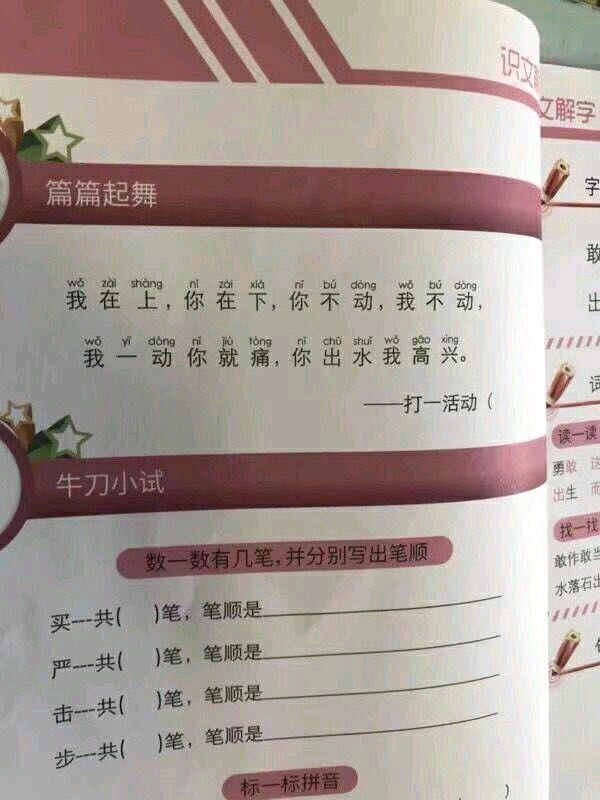 识文
文解字
篇篇起舞
wǒ zài shàng nǐ zài xià nǐ bú dòng wǒ bú dòng
我在上，你在下，你不动，我不动，
wǒ yī dòng nǐ jiù tòng nǐ chū shuǐ wǒ gāo xìng
我一动你就痛，你出水我高兴。
——打一活动（
牛刀小试
数一数有几笔，并分别写出笔顺
买---共( )笔，笔顺是
严---共( )笔，笔顺是
击---共( )笔，笔顺是
步---共( )笔，笔顺是
标一标拼音
)
字
敢
出
词
读一读
勇敢 这
出生 而
找一找
敢作敢当
水落石出